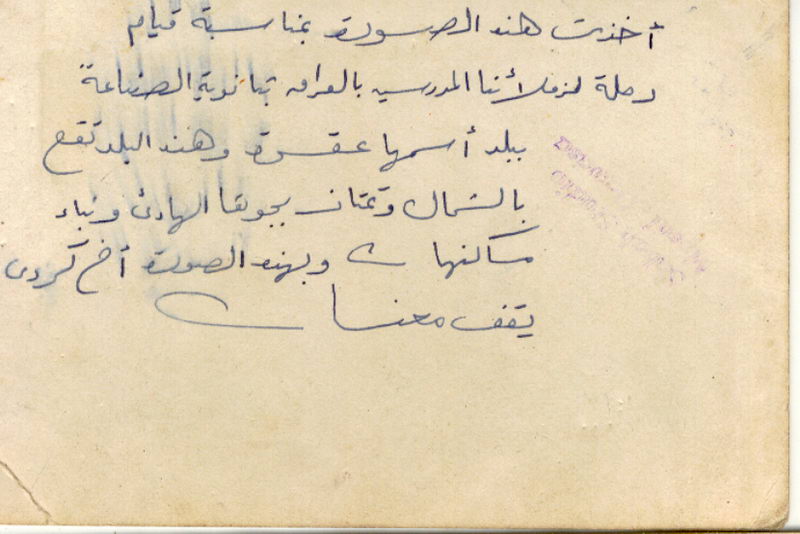 أخذت هذه الصورة بمناسبة قيام
رحلة لزملائنا المدرسين بالعراق بثانوية الصناعة
ببلد أسمها عقرة وهذه البلد تقع
بالشمال وتمتاز بجوها الهادئ وبناء
مساكنها وبهذه الصورة أخ كردى
يقف معنا